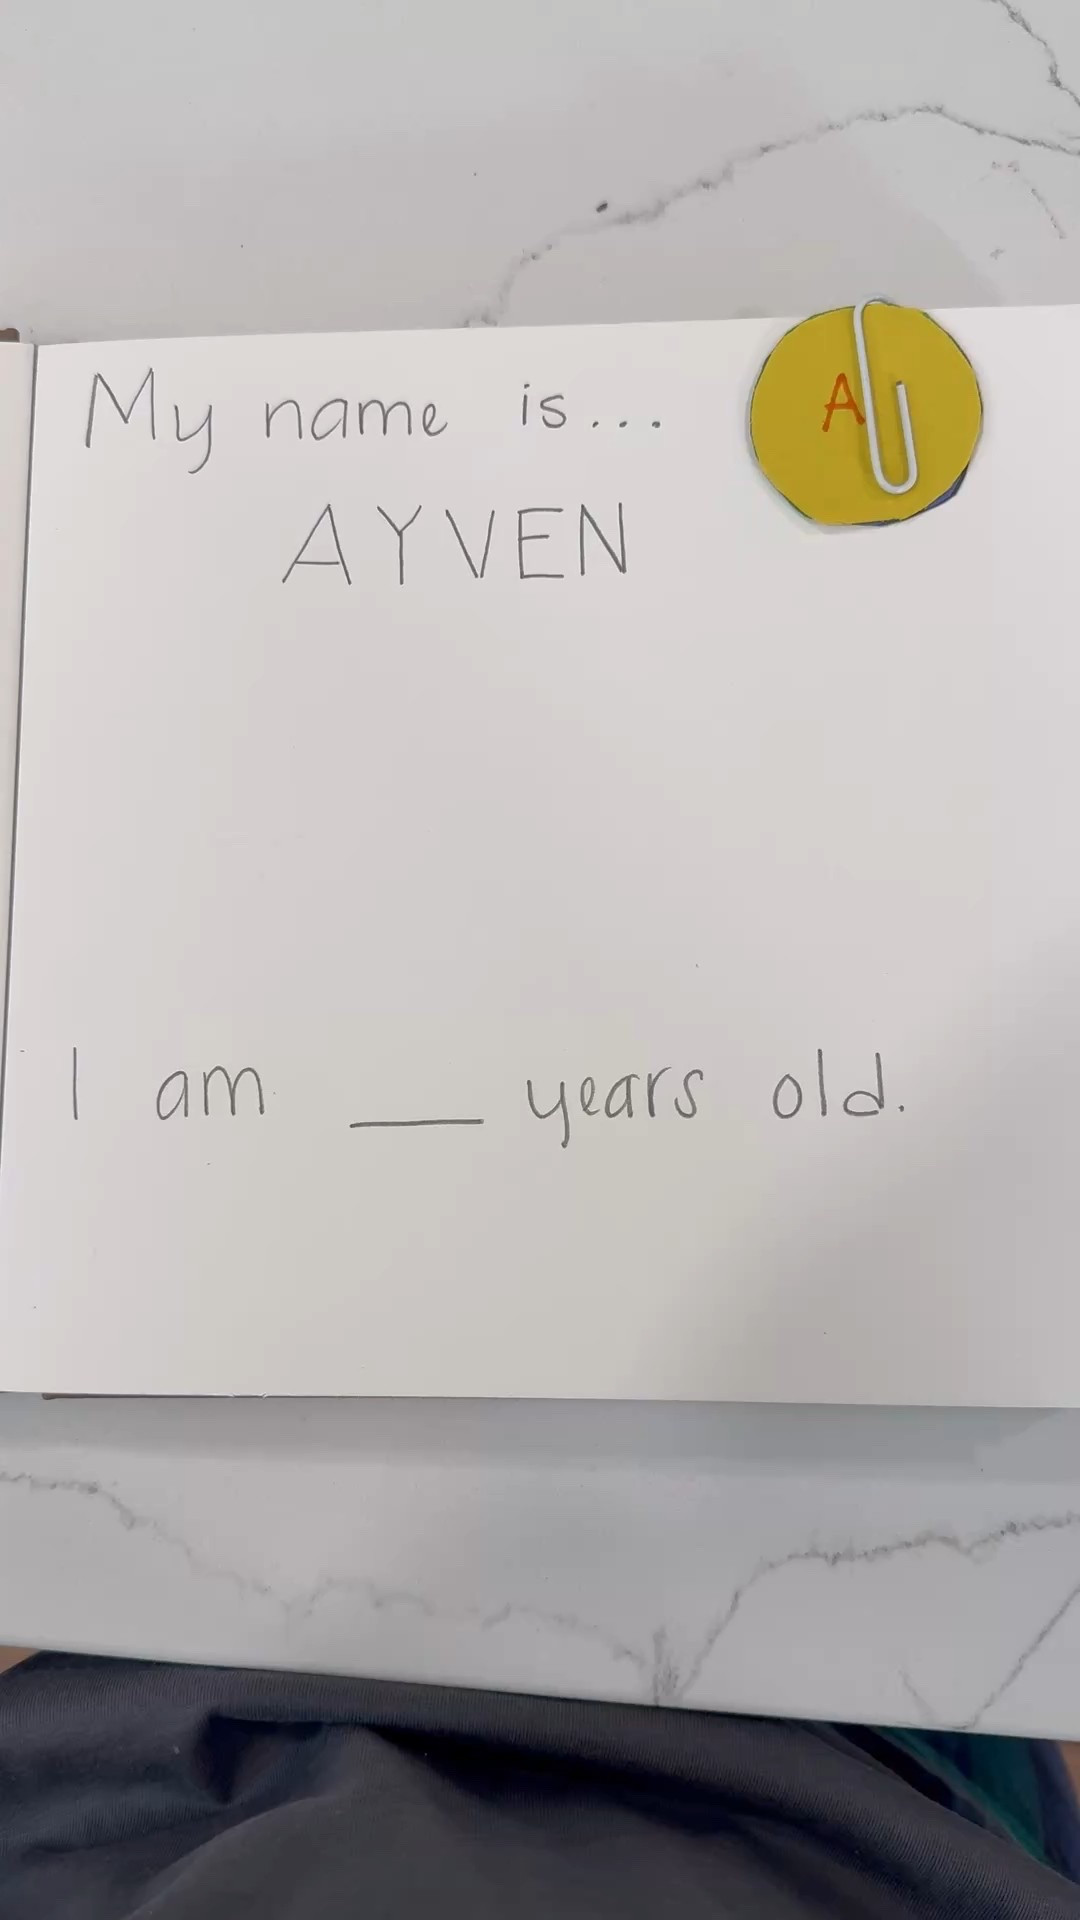 My name is...
A
AYVEN
I am __ years old.